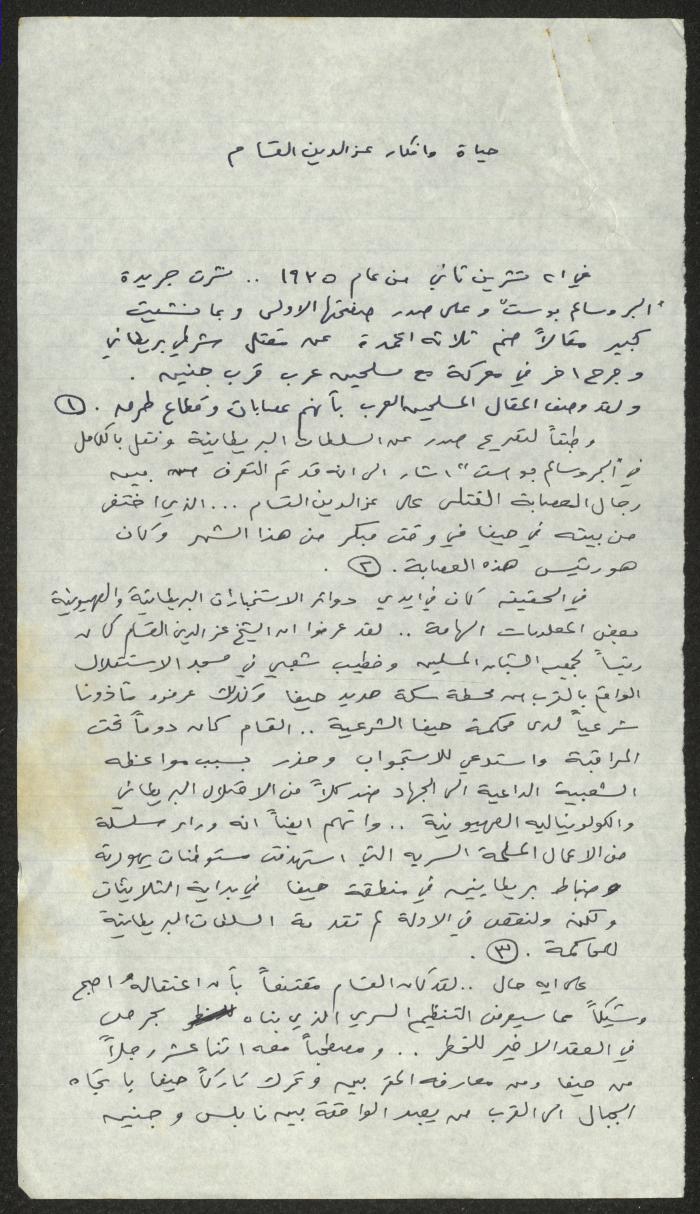 حياة وافكار عز الدين القسام
في ٢١ تشرين ثاني من عام ١٩٣٥ .. نشرت جريدة
"البروسالم بوست" وعلى صدر صفحتها الاولى وبمانشيت
كبير مقالاً ضم ثلاثة اعمدة عن مقتل شرطي بريطاني
وجرح اخر في معركة مع مسلحين عرب قرب جنين .
ولقد وصف المقال المسلحين العرب بأنهم عصابات وقطاع طرق . (١)
وطبقاً لتصريح صدر عن السلطات البريطانية ونقل بالكامل
في "الجروسالم بوست" اشار الى انه قد تم التعرف من بين
رجال العصابة القتلى على عز الدين القسام ... الذي اختفى
من بيته في حيفا في وقت مبكر من هذا الشهر وكان
هو رئيس هذه العصابة . (٢) .
في الحقيقة كان في ايدي دوائر الاستخبارات البريطانية والصهيونية
بعض المعلومات الهامة .. لقد عرفوا ان الشيخ عز الدين القسام كان
رئيساً لجمعية الشبان المسلمين وخطيب شعبي في مسجد الاستقلال
الواقع بالقرب من محطة سكة حديد حيفا وكذلك عرفوه مأذونا
شرعياً لدى محكمة حيفا الشرعية .. القسام كان دوماً تحت
المراقبة واستدعي للاستجواب وحذر بسبب مواعظه
الشعبية الداعية الى الجهاد ضد كلاً من الاحتلال البريطاني
والكولونياليه الصهيونية .. واتهم ايضاً انه وراء سلسلة
من الاعمال المسلحة السريه التي استهدفت مستوطنات يهودية
وضباط بريطانيين في منطقة حيفا في بداية الثلاثينات
ولكن ولنقص في الادلة لم تقدمه السلطات البريطانية
للمحاكمة . (٣) .
على ايه حال .. لقد كان القسام مقتنعاً بأن اعتقاله اصبح
وشيكاً مما سيعرض التنظيم السري الذي بناه بحرص
في العقد الاخير للخطر .. ومصطحباً معه اثنا عشر رجلاً
من حيفا ومن معارفه المقربين وتحرك تاركاً حيفا باتجاه
الجبال الى القرب من يعبد الواقعة بين نابلس وجنين